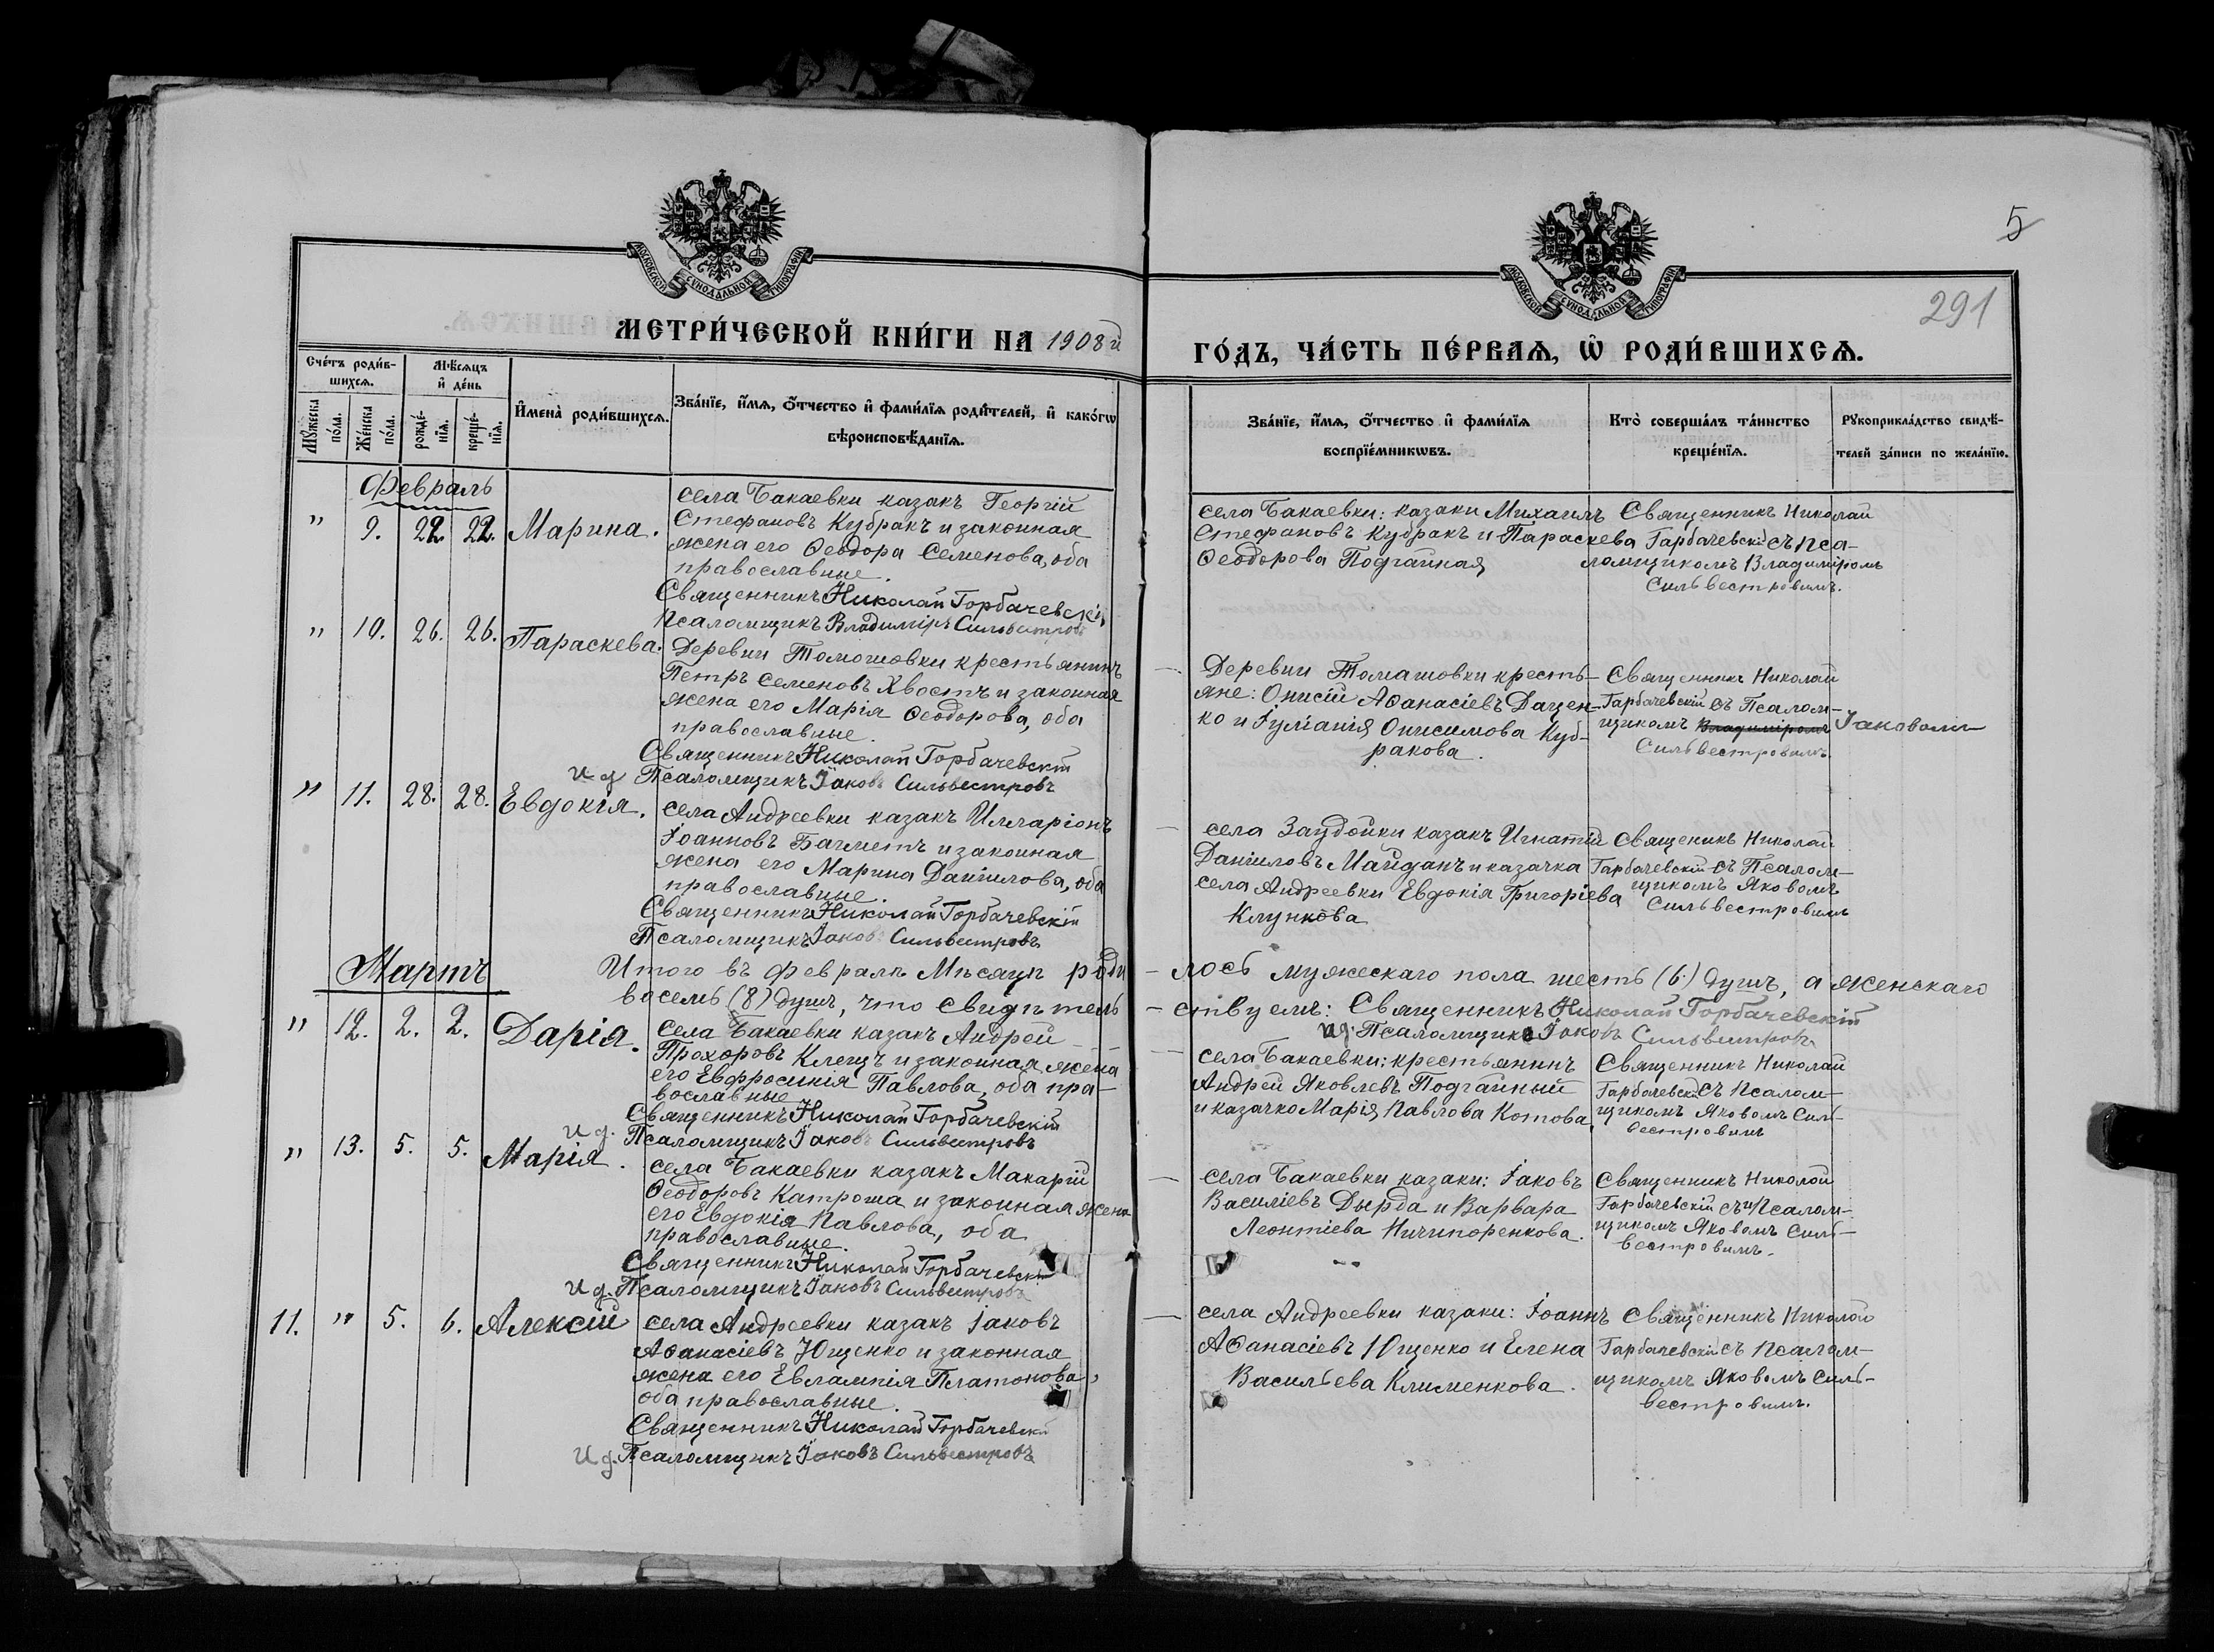 5
291
МОСКОВСКОЙ СѴНОДАЛЬНОЙ ТИПОГРАФІИ
МОСКОВСКОЙ СѴНОДАЛЬНОЙ ТИПОГРАФІИ
МЕТРИ́ЧЕСКОЙ КНИ́ГИ НА 1908 й
ГО́ДЪ, ЧА́СТЬ ПЕ́РВАѦ, Ѡ РОДИ́ВШИХСѦ.
Сче́тъ роди́в-
шихсѧ.
Мѣ́сѧцъ
и҆ де́нь
Мꙋ́жеска
по́ла.
Же́нска
по́ла.
рожде́-
нїѧ.
креще́-
нїѧ.
И҆мена̀ роди́вшихсѧ.
Зва́нїе, и҆́мѧ, ѻ҆́тчество и҆ фами́лїѧ роди́телей, и҆ како́гѡ
вѣроисповѣ́данїѧ.
Зва́нїе, и҆́мѧ, ѻ҆́тчество и҆ фами́лїѧ
воспрїе́мникѡвъ.
Кто̀ соверша́лъ та́инство
креще́нїѧ.
Рꙋкоприкла́дство свидѣ́-
телей за́писи по жела́нїю.
Февраль
" 9. 22. 22. Марина.
села Бакаевки казакъ Георгій
Стефановъ Кубракъ и законная
жена его Ѳеодора Семенова, оба
православные.
Священникъ Николай Горбачевскій
Псаломщикъ Владиміръ Сильвестровъ
села Бакаевки: казаки Михаилъ
Стефановъ Кубракъ и Параскева
Ѳеодорова Подгайная
Священникъ Николай
Гарбачевскій съ Пса-
ломщикомъ Владиміромъ
Сильвестровымъ.
" 10. 26. 26. Параскева.
Деревни Томашовки крестьянинъ
Петръ Семеновъ Хвостъ и законная
жена его Марія Ѳеодорова, оба
православные.
Священникъ Николай Горбачевскій
И д Псаломщикъ Іаковъ Сильвестровъ
Деревни Томашовки кресть-
яне: Онисій Аѳанасіевъ Дацен-
ко и Іуліанія Онисимова Куб-
ракова.
Священникъ Николай
Гарбачевскій съ Псалом-
щикомъ Владиміромъ Іаковомъ
Сильвестровымъ.
" 11. 28. 28. Евдокія.
села Андреевки казакъ Илларіонъ
Іоанновъ Бачметъ и законная
жена его Марина Даніилова, оба
православные.
Священникъ Николай Горбачевскій
Псаломщикъ Іаковъ Сильвестровъ
села Заудойки казакъ Игнатій
Даніиловъ Майданъ и казачка
села Андреевки Евдокія Григоріева
Клункова
Священикъ Николай
Гарбачевскій съ Псалом-
щикомъ Яковомъ
Сильвестровымъ
Итого въ февралѣ Мѣсяцѣ роди-лось мужескаго пола шесть (6) душъ, а женскаго
восемь (8) душъ, что свидѣтель-ствуемъ: Священникъ Николай Горбачевскій
И д. Псаломщикъ Іаковъ Сильвестровъ
Мартъ
" 12. 2. 2. Дарія.
села Бакаевки казакъ Андрей
Прохоровъ Клещъ и законная жена
его Евфросинія Павлова, оба пра-
вославные
Священникъ Николай Горбачевскій
И д. Псаломщикъ Іаковъ Сильвестровъ
села Бакаевки: крестьянинъ
Андрей Яковлевъ Подгайный
и казачка Марія Павлова Котова
Священникъ Николай
Гарбачевскій съ Псалом-
щикомъ Яковомъ Силь-
вестровымъ
" 13. 5. 5. Марія.
села Бакаевки казакъ Макарій
Ѳеодоровъ Катроша и законная жена
его Евдокія Павлова, оба
православные.
Священникъ Николай Горбачевскій
И д. Псаломщикъ Іаковъ Сильвестровъ
села Бакаевки казаки: Іаковъ
Василіевъ Дырда и Варвара
Леонтіева Ничипоренкова.
Священникъ Николай
Гарбачевскій съ Псалом-
щикомъ Яковомъ Силь-
вестровымъ.
11. " 5. 6. Алексій
села Андреевки казакъ Іаковъ
Аѳанасіевъ Ющенко и законная
жена его Евлампія Платонова,
оба православные.
Священникъ Николай Горбачевскій
И д. Псаломщикъ Іаковъ Сильвестровъ
села Андреевки казаки: Іоаннъ
Аѳанасіевъ Ющенко и Елена
Васильева Клименкова.
Священникъ Николай
Гарбачевскій съ Псалом-
щикомъ Яковомъ Силь-
вестровымъ.